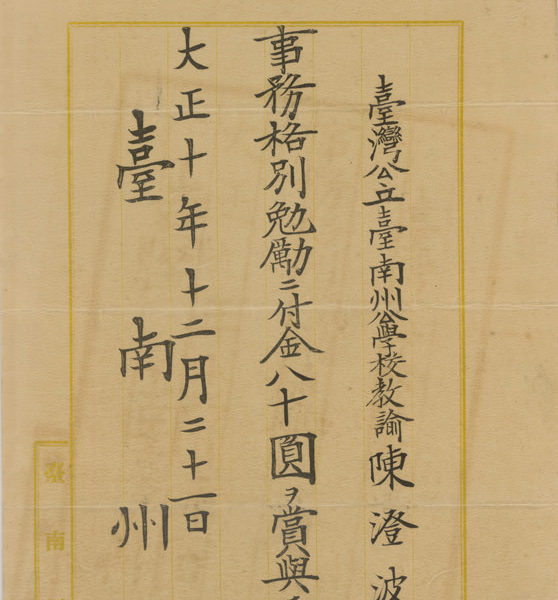 臺灣公立臺南州公學校教諭陳澄波
事務格別勉勵ニ付金八十圓ヲ賞與
大正十年十二月二十一日
臺南州
臺南